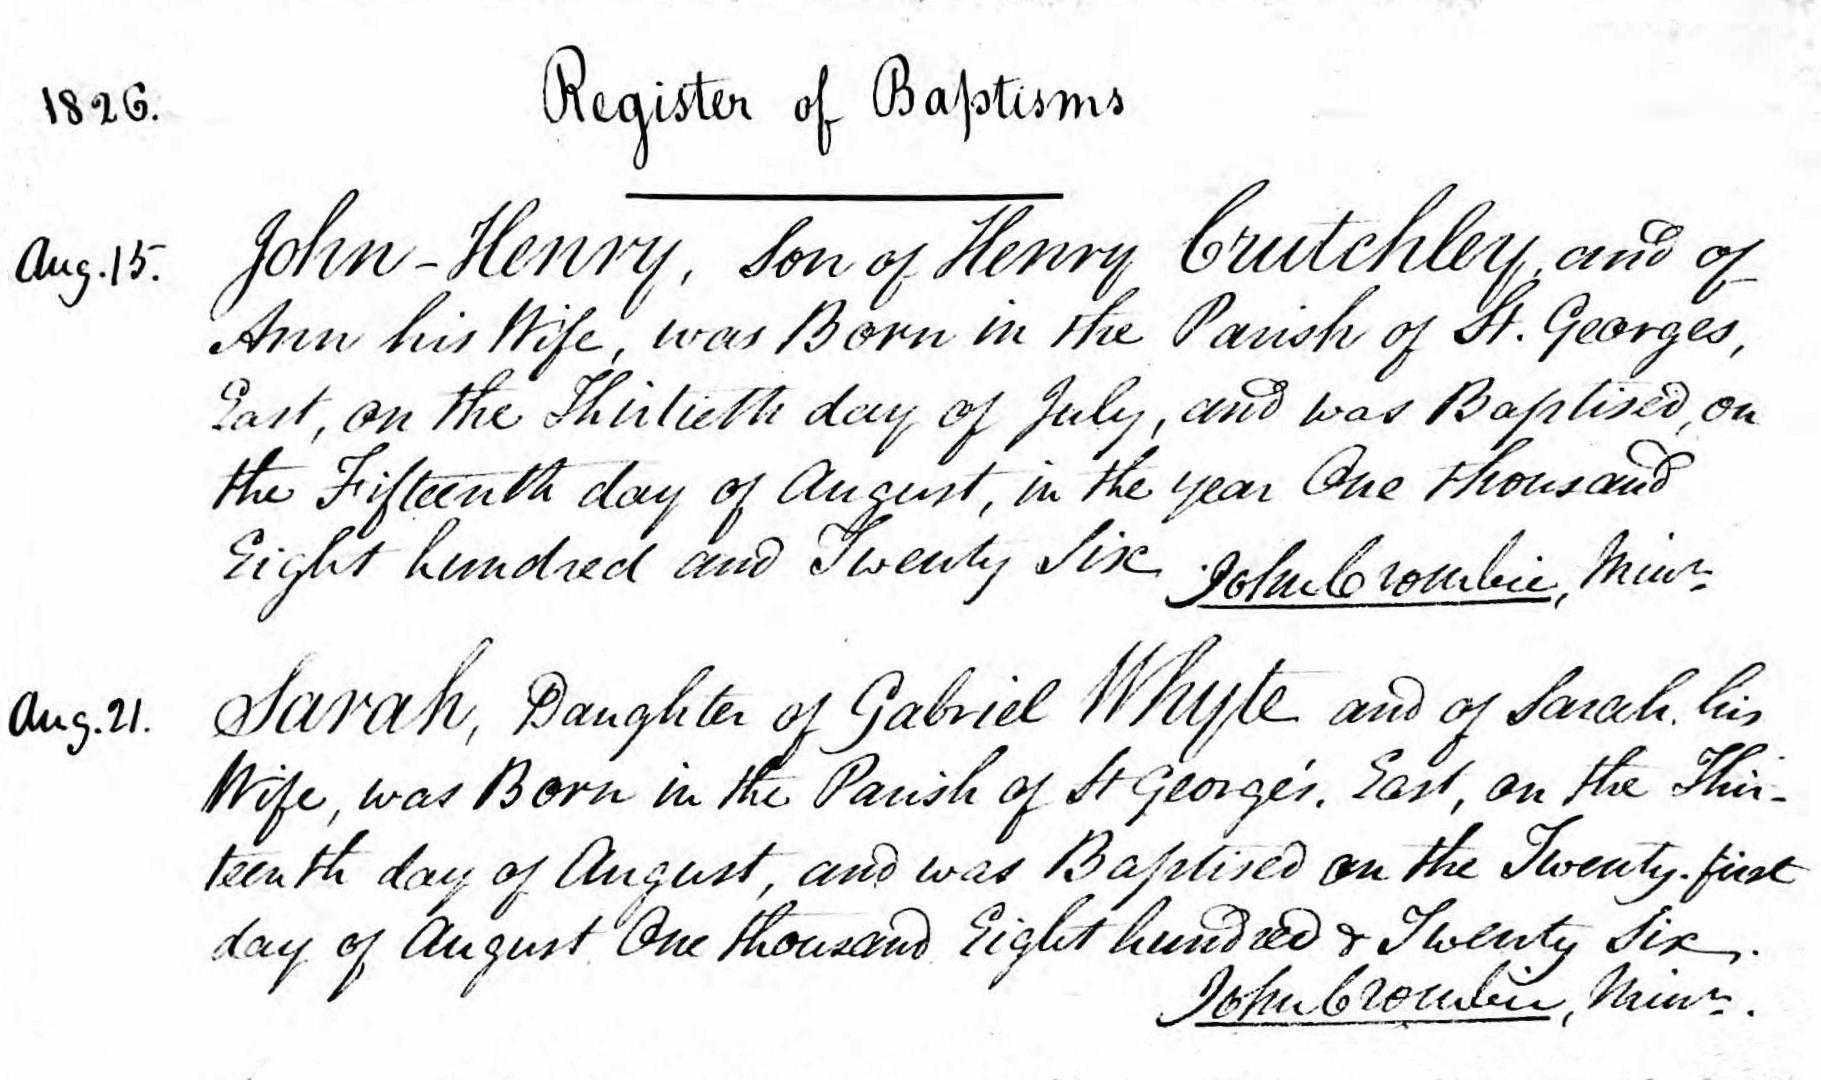 1826. Register of Baptisms
Aug. 15. John-Henry, Son of Henry Crutchley, and of
Ann his Wife, was Born in the Parish of St. Georges,
East, on the Thirtieth day of July, and was Baptised, on
the Fifteenth day of August, in the year One thousand
Eight hundred and Twenty Six. John Crombie, Minr.
Aug. 21. Sarah, Daughter of Gabriel Whyte and of Sarah. his
Wife, was Born in the Parish of St George's. East, on the Thir-
teenth day of August, and was Baptised on the Twenty-first
day of August One thousand Eight hundred & Twenty Six.
John Crombie, Minr.